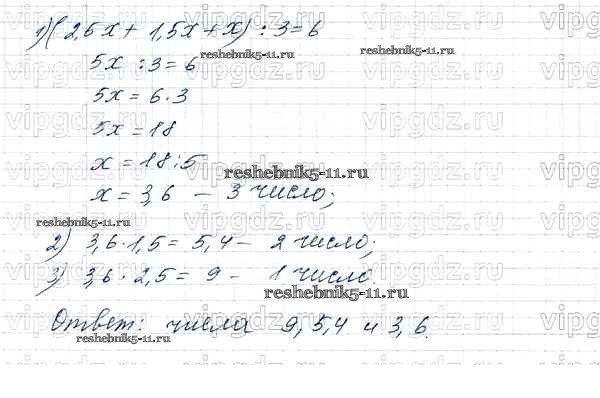 1) (2,5x + 1,5x + x) : 3 = 6
5x : 3 = 6
5x = 6 · 3
5x = 18
x = 18 : 5
x = 3,6 — 3 число;
2) 3,6 · 1,5 = 5,4 — 2 число;
3) 3,6 · 2,5 = 9 — 1 число
Ответ: числа 9, 5,4 и 3,6.
vipgdz.ru
reshebnik5-11.ru
reshebnik5-11.ru
reshebnik5-11.ru
reshebnik5-11.ru
reshebnik5-11.ru
reshebnik5-11.ru